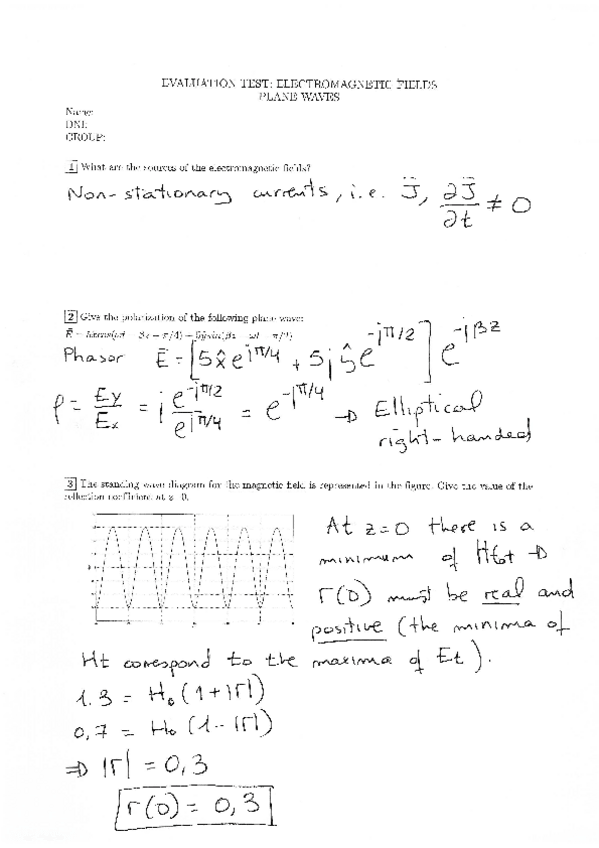 EVALUATION TEST: ELECTROMAGNETIC FIELDS
PLANE WAVES
Name:
DNI:
GROUP:
1 What are the sources of the electromagnetic fields?
Non-stationary currents, i.e. J̄, ∂J̄/∂t ≠ 0
2 Give the polarization of the following plane wave:
Phasor Ē = [5x̂e^{jπ/4} + 5jŷe^{-jπ/2}] e^{-jβz}
ρ = Ey/Ex = j e^{-jπ/2}/e^{jπ/4} = e^{-jπ/4} → Elliptical
right-handed
3 The standing wave diagram for the magnetic field is represented in the figure. Give the value of the
reflection coefficient at z=0.
At z=0 there is a
minimum of Htot →
Γ(0) must be real and
positive (the minima of
Ht correspond to the maxima of Et).
1.3 = H₀ (1+|Γ|)
0,7 = H₀ (1-|Γ|)
⇒ |Γ| = 0,3
Γ(0) = 0,3